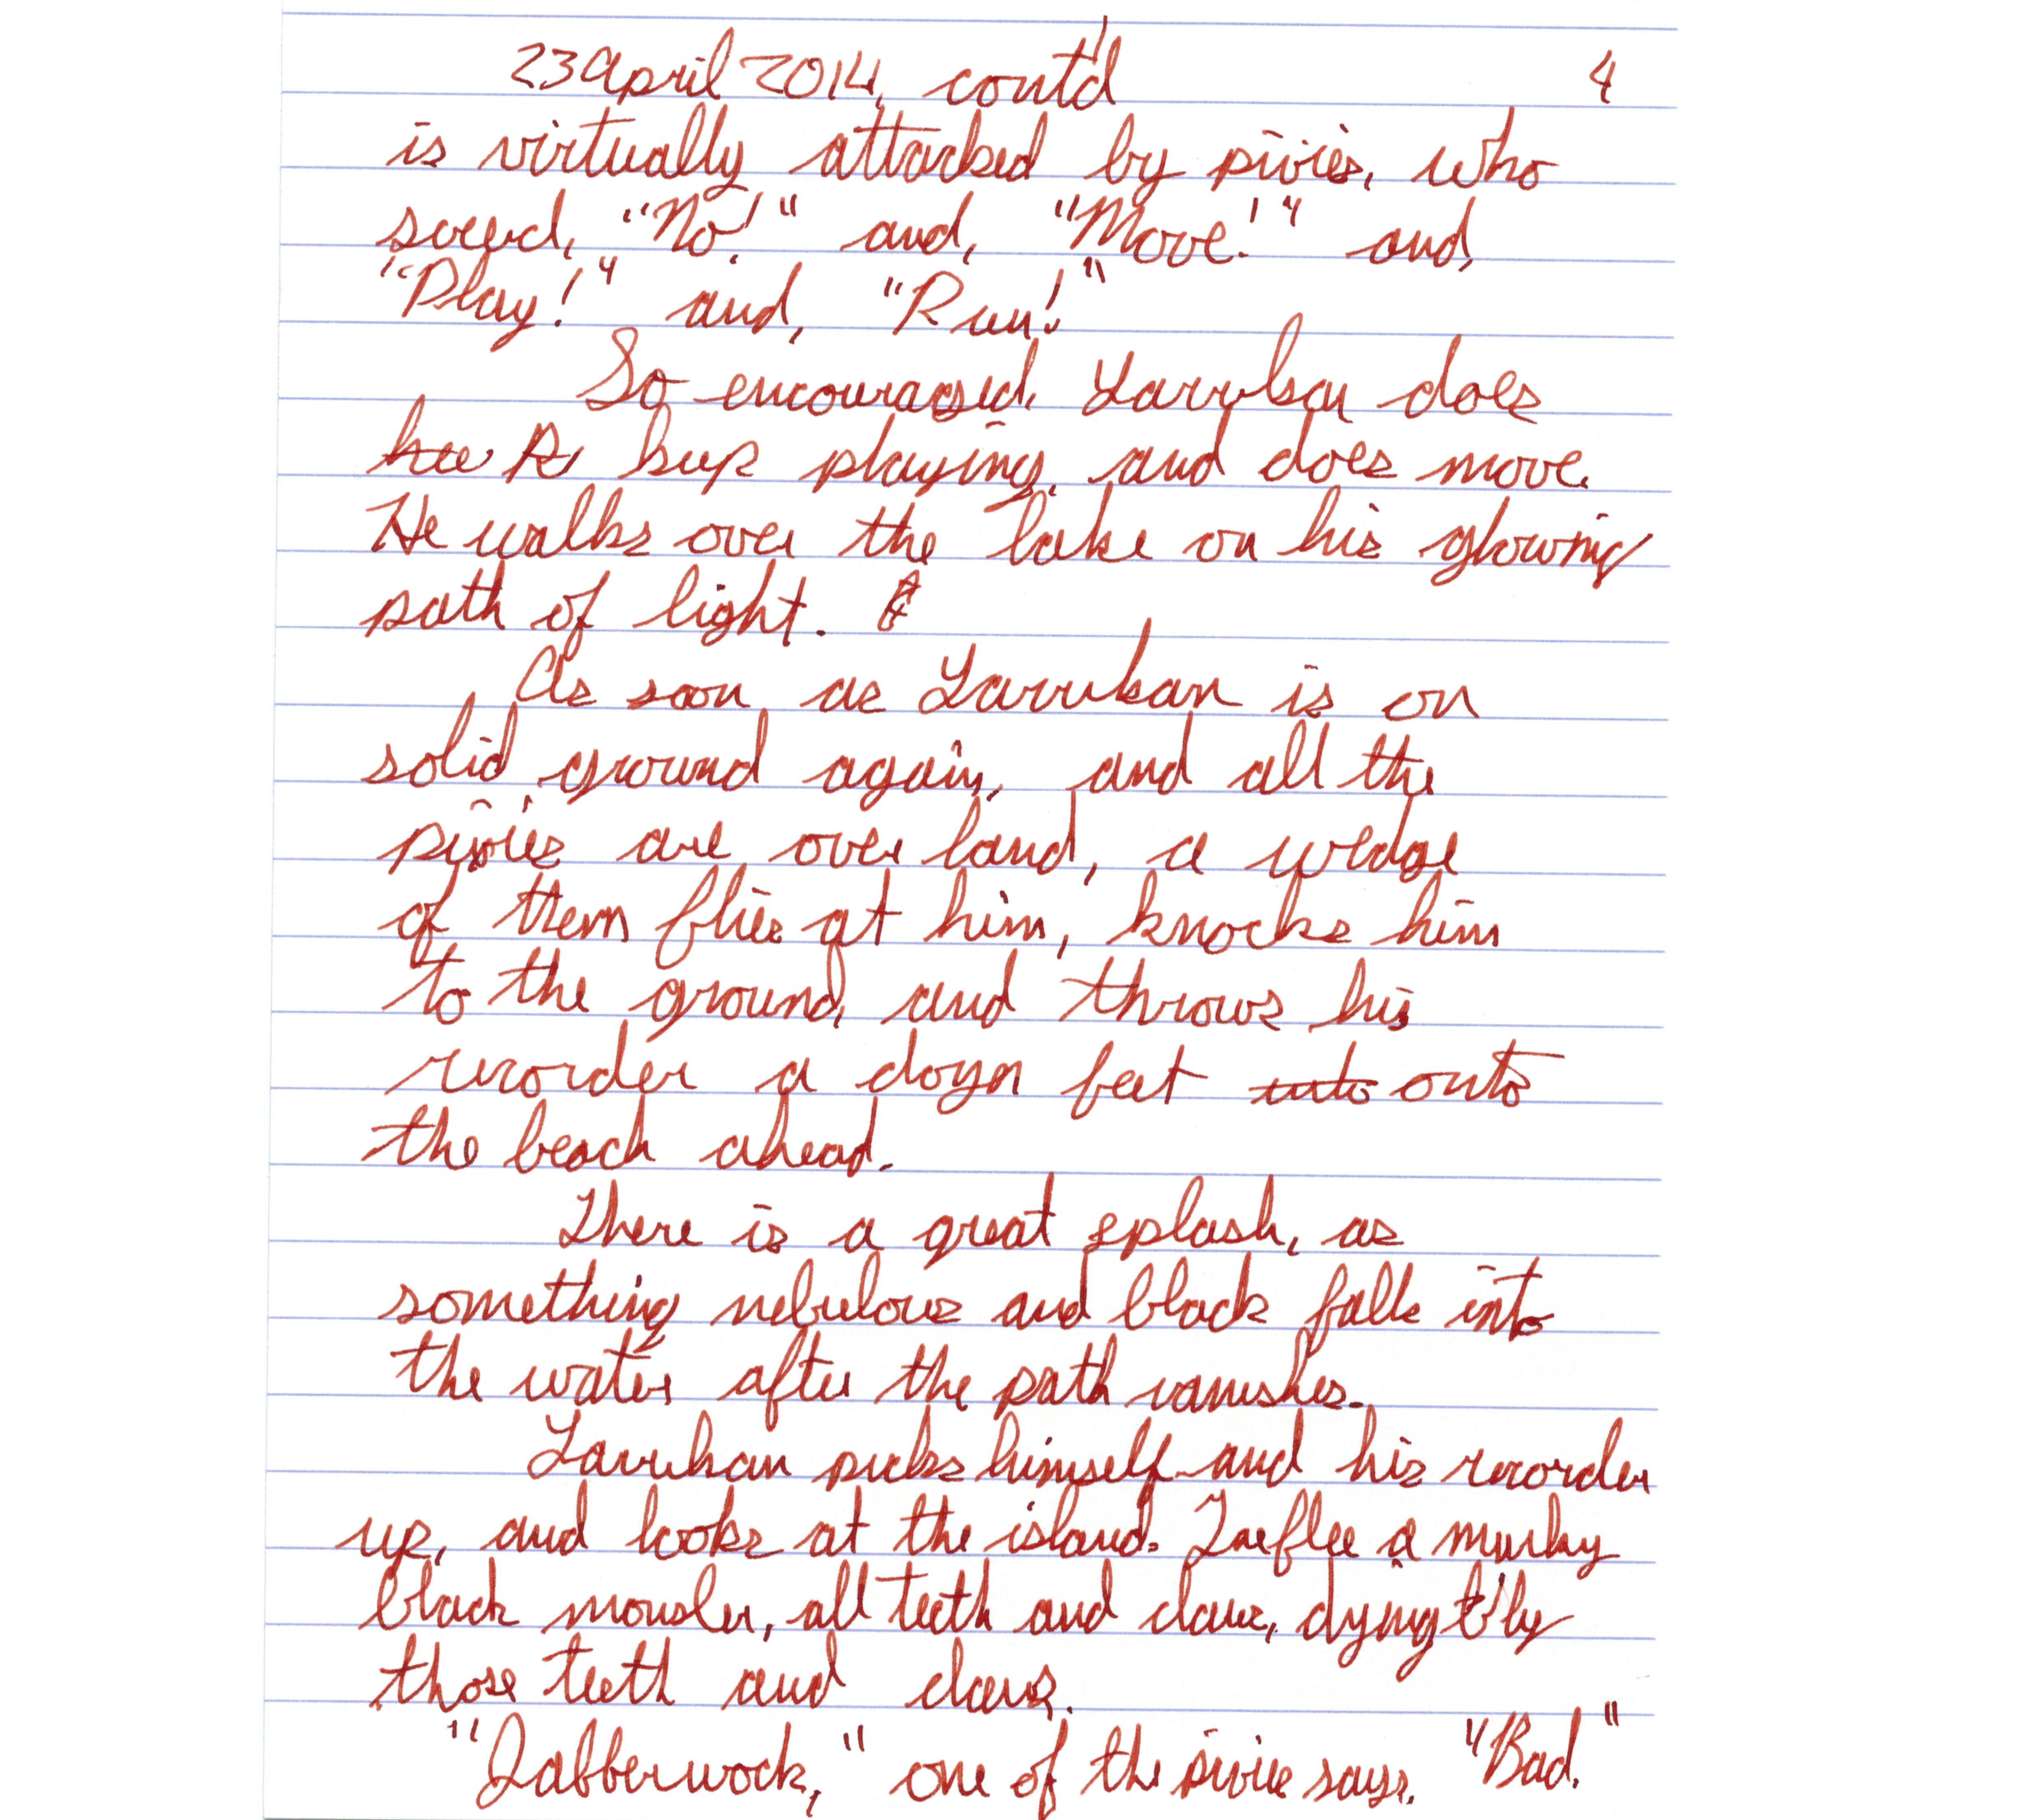 23 April 2014, cont'd 4
is virtually attacked by pixies, who
scream, "No!" and, "Move!" and,
"Play!" and, "Run!"
So encouraged, Larrukan does
keep playing, and does move.
He walks over the lake on his glowing
path of light.
As soon as Larrukan is on
solid ground again, and all the
pixies are over land, a wedge
of them flies at him, knocks him
to the ground, and throws his
recorder a dozen feet into onto
the beach ahead.
There is a great splash, as
something nebulous and black falls into
the water after the path vanishes.
Larrukan picks himself and his recorder
up, and looks at the island. a murky
black monster, all teeth and claws, dying by
those teeth and claws.
"Jabberwock," one of the pixies says. "Bad."